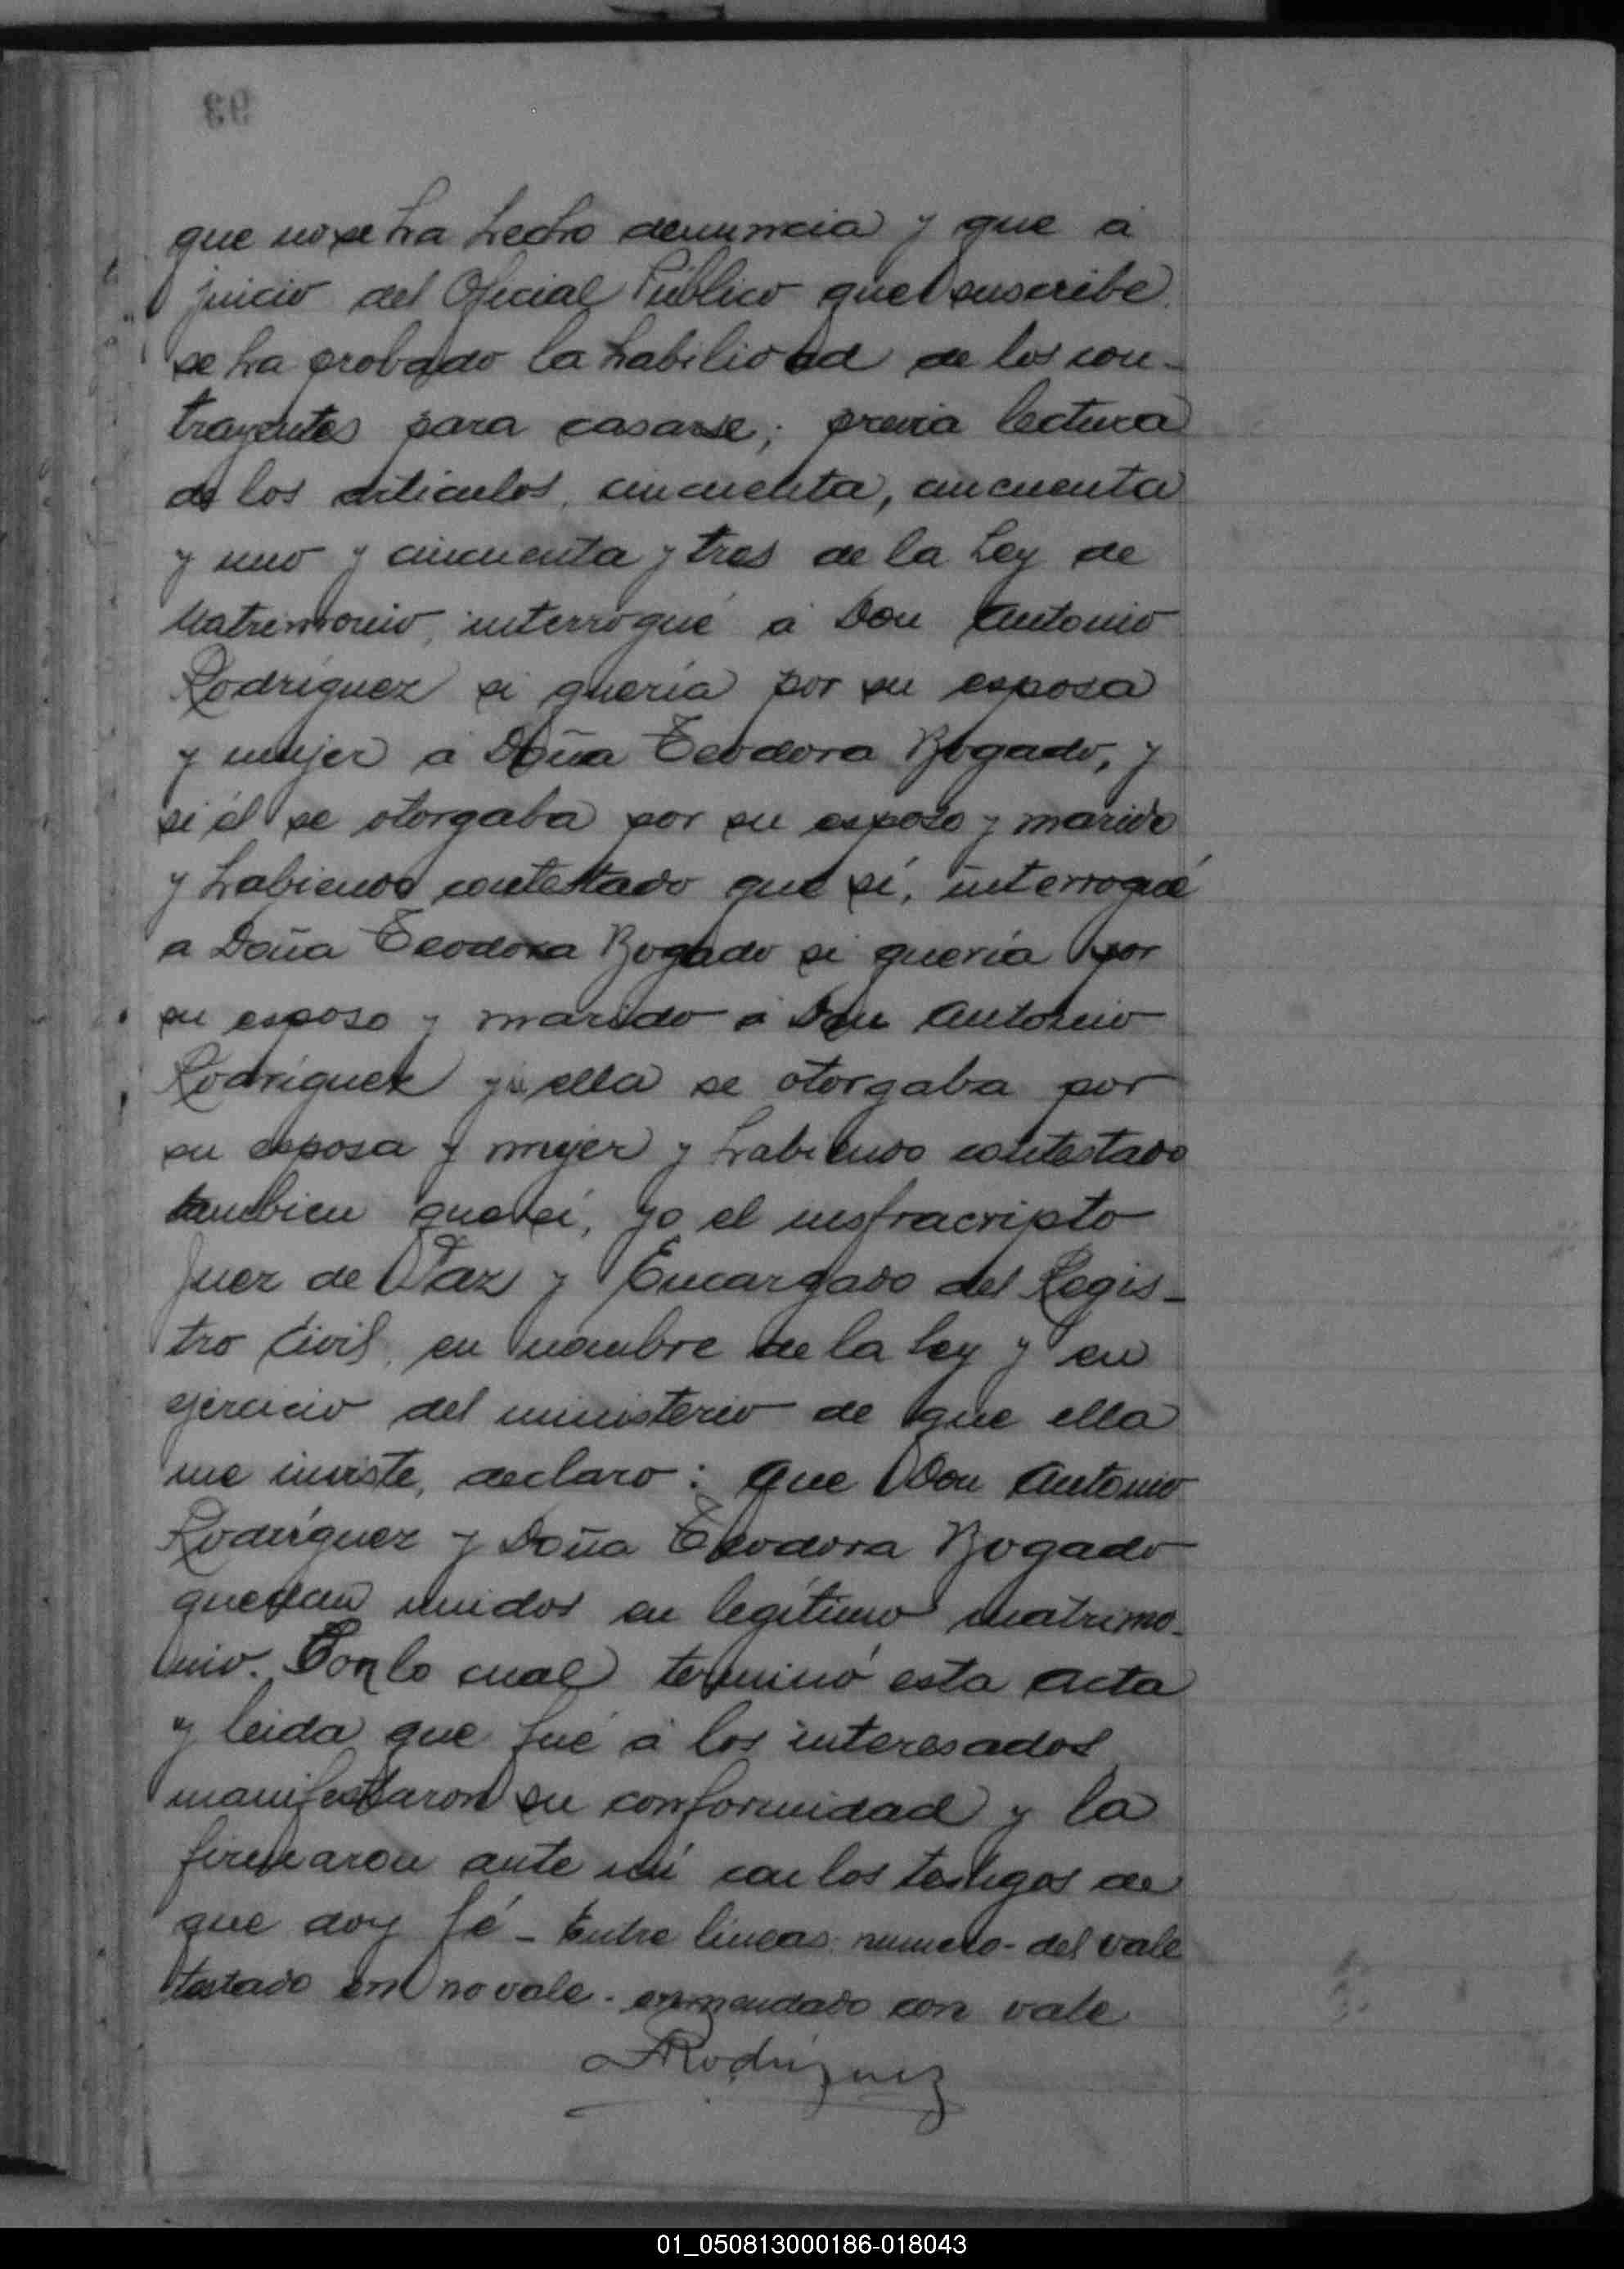 93
que no se ha hecho denuncia y que á
juicio del Oficial Público que suscribe
se ha probado la habilidad de los con-
trayentes para casarse; previa lectura
de los artículos, cincuenta, cincuenta
y uno y cincuenta y tres de la Ley de
Matrimonio, interrogué á Don Antonio
Rodríguez si quería por su esposa
y mujer á Doña Teodora Bogado, y
si él se otorgaba por su esposo y marido
y habiendo contestado que sí, interrogué
a Doña Teodora Bogado si quería por
su esposo y marido á Don Antonio
Rodríguez y si ella se otorgaba por
su esposa y mujer y habiendo contestado
tambien que sí, yo el insfracripto
Juez de Paz y Encargado del Regis-
tro Civil, en nombre de la ley y en
ejercicio del ministerio de que ella
me inviste, declaro: que Don Antonio
Rodríguez y Doña Teodora Bogado
quedan unidos en legítimo matrimo-
nio. Con lo cual terminó esta acta
y leida que fué á los interesados,
manifestaron su conformidad y la
firmaron ante mí con los testigos de
que doy fé - Entre líneas: numero - del vale
testado en no vale - enmendado con vale
ARodríguez
01_050813000186-018043